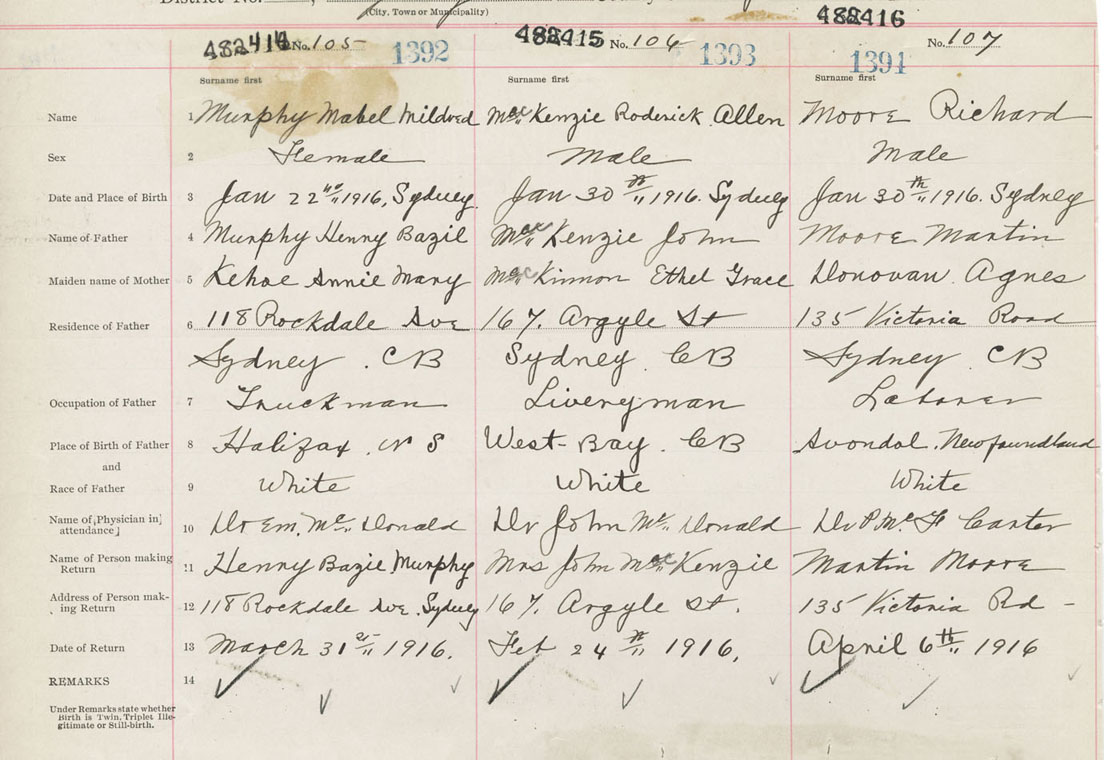 (City, Town or Municipality)
482414 No. 105 1392 482415 No. 106 1393 482416 1394 No. 107
Surname first Surname first Surname first
Name 1 Murphy Mabel Mildred MacKenzie Roderick Allen Moore Richard
Sex 2 Female Male Male
Date and Place of Birth 3 Jan 22nd 1916, Sydney Jan 30th 1916. Sydney Jan 30th 1916. Sydney
Name of Father 4 Murphy Henry Bazil MacKenzie John Moore Martin
Maiden name of Mother 5 Kehoe Annie Mary MacKinnon Ethel Grace Donovan Agnes
Residence of Father 6 118 Rockdale Ave 167. Argyle St 135 Victoria Road
Sydney. CB Sydney CB Sydney CB
Occupation of Father 7 Truckman Liveryman Laborer
Place of Birth of Father 8 Halifax. N S West-Bay. CB Avondal. Newfoundland
and
Race of Father 9 White White White
Name of Physician in attendance 10 Dr Em. Mc Donald Dr John Mc Donald Dr P. Mc F Carter
Name of Person making Return 11 Henry Bazil Murphy Mrs John MacKenzie Martin Moore
Address of Person making Return 12 118 Rockdale Ave. Sydney 167. Argyle St. 135 Victoria Rd -
Date of Return 13 March 31st 1916. Feb 24th 1916. April 6th 1916
REMARKS 14
Under Remarks state whether
Birth is Twin, Triplet Ille-
gitimate or Still-birth.